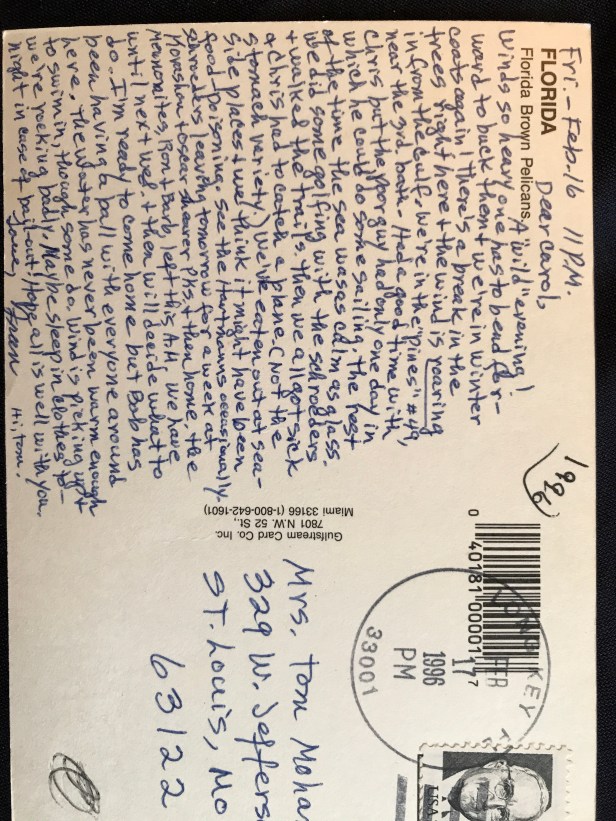 Fri. - Feb. 16 11 P.M.
FLORIDA
Florida Brown Pelicans.
Dear Carol,
A "wild" evening!
Winds so heavy one has to bend for-
ward to buck them & we're in winter
coats again! There's a break in the
trees right here & the wind is roaring
in from the Gulf. We're in the "Pines" #49,
near the 3rd bath. Had a good time with
Chris but the poor guy had only one day in
which he could do some sailing, the rest
of the time the sea was as calm as glass.
We did some golfing with the Schroders
& walked the trails. Then we all got sick
& Chris had to catch a plane. (Not the
stomach variety) We've eaten out at sea-
side places & we think it might have been
food poisoning. See the Hartmanns occasionally.
Schroders leaving tomorrow for a week at
& Oscar Sherer Pks. & then home. The
Mennonites, Ron & Barb, left this AM. We have
until next Wed & then will decide what to
do. I'm ready to come home but Bob has
been having a ball with everyone around
here. The water has never been warm enough
to swim in, though some do. Wind is picking up &
we're rocking badly. Maybe sleep in clothes to-
night in case of bail-out! Hope all is well with you.
Love,
Hi, Tom.
1996
Gulfstream Card Co. Inc.
7801 N.W. 52 St.,
Miami 33166 (1-800-642-1601)
0 40181 00001 7
KEY
FEB
17
1996
PM
33001
USA
Mrs. Tom Moha
329 W. Jeffers
St. Louis, Mo
63122